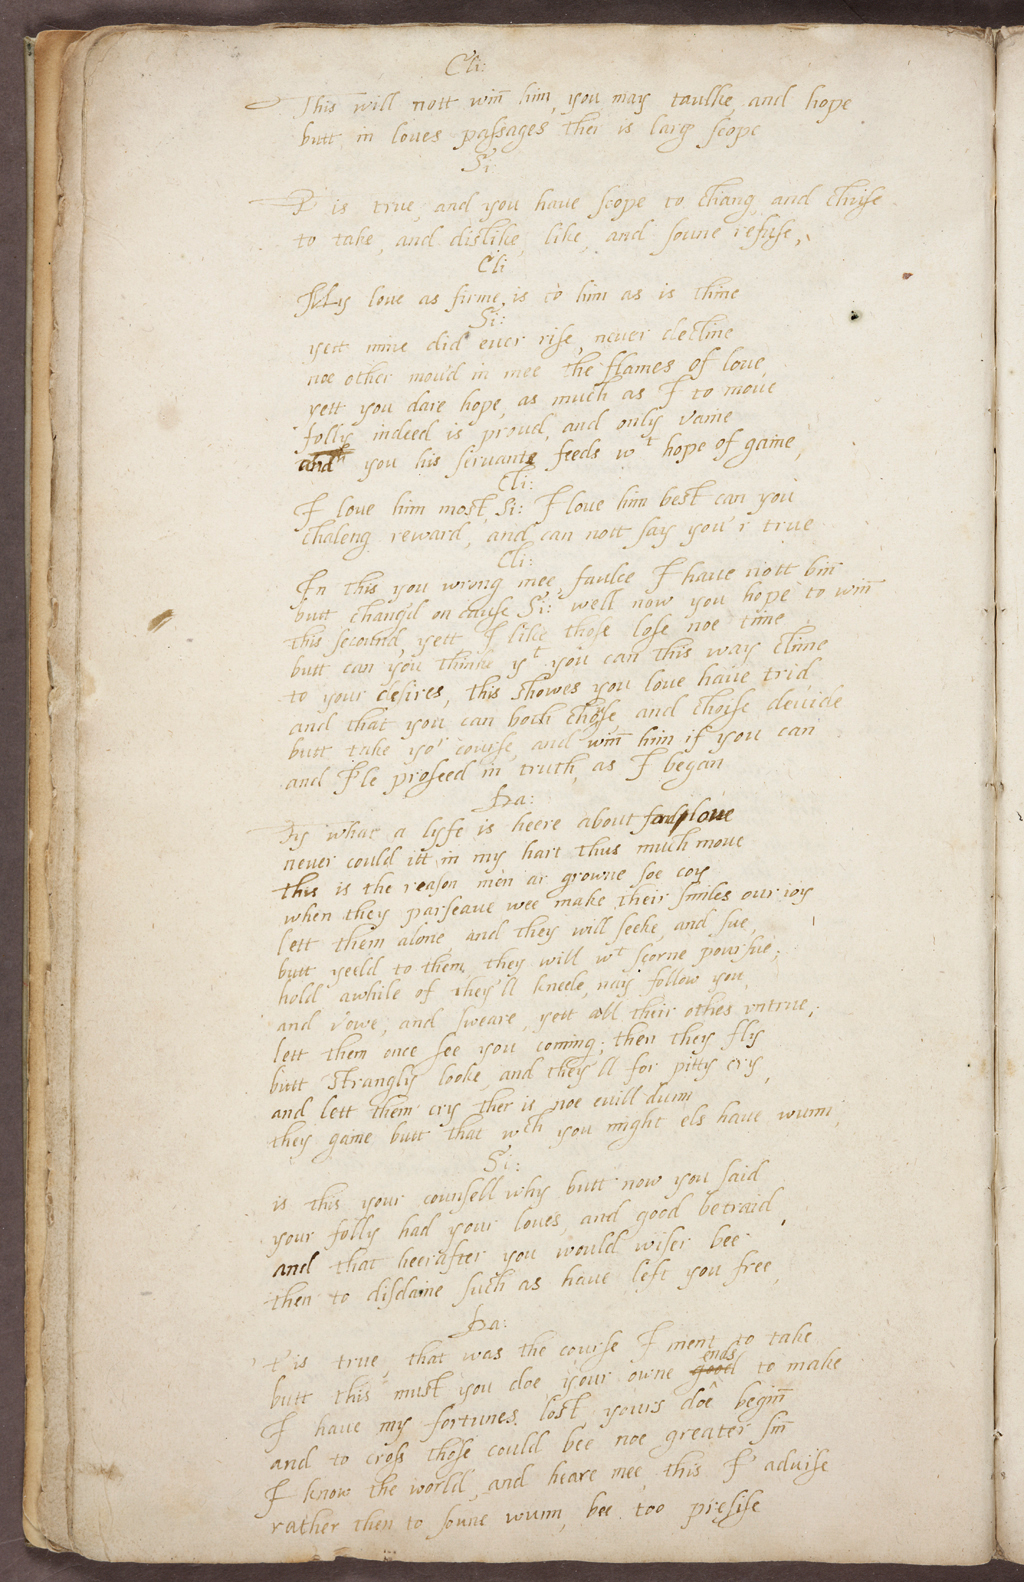 Cli:
This will nott winn him, you may taulke, and hope
butt in loves passages ther is larg scope
Si:
T' is true, and you have scope to chang, and chuse
to take, and dislike, like, and soune refuse,
Cli
My love as firme is to him as is thine
Si:
yett mine did ever rise, never decline
noe other mov'd in mee the flames of love,
yett you dare hope, as much as I to move
folly indeed is proud, and only vaine
and you his servants feeds wt hope of gaine,
Cli:
I love him most, Si: I love him best can you
chaleng reward, and can nott say you'r true
Cli:
In this you wrong mee, faulce I have nott binn
butt chang'd on cause Si: well now you hope to winn
this second, yett I like those lose noe time
butt can you thinke yt you can this way clime
to your desires, this showes you love have trid
and that you can both chose, and choise devide
butt take yor course, and winn him if you can
and I'le proseed in truth, as I began
Fra:
Fy what a lyfe is heere about love
never could itt in my hart thus much move
this is the reason men ar growne soe coy
when they parseave wee make their smiles our joy
lett them alone, and they will seeke, and sue,
butt yeeld to them, they will wt scorne poursue;
hold awhile of they'll kneele, nay follow you,
and vowe, and sweare, yett all their othes vntrue;
lett them once see you coming; then they fly
butt strangly looke, and they'll for pitty cry,
and lett them cry ther is noe evill dunn
they gaine butt that wch you might els have wunn;
Si:
is this your counsell why butt now you said
your folly had your loves, and good betraid,
and that heerafter you would wiser bee
then to disdaine such as have left you free,
Fra:
T' is true, that was the course I ment to take
butt this must you doe your owne good ends to make
I have my fortunes lost, yours doe beginn
and to cross those could bee noe greater sinn
I know the world, and heare mee, this I' advise
rather then to soune wunn, bee too presise